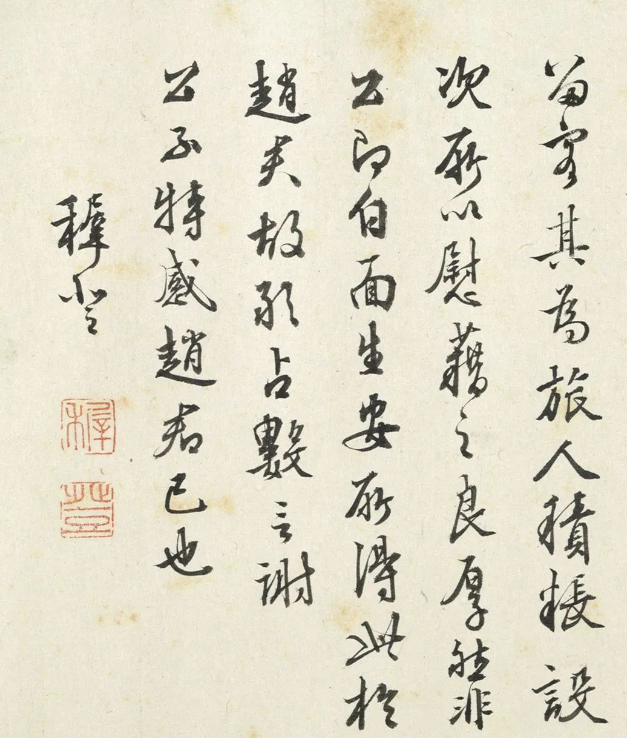 留客其為旅人積粻設
次所以慰藉之良厚然非
公即白面生安所得此於
趙夫故敢占數言謝
公子特感趙君已也
穉登
穉
登